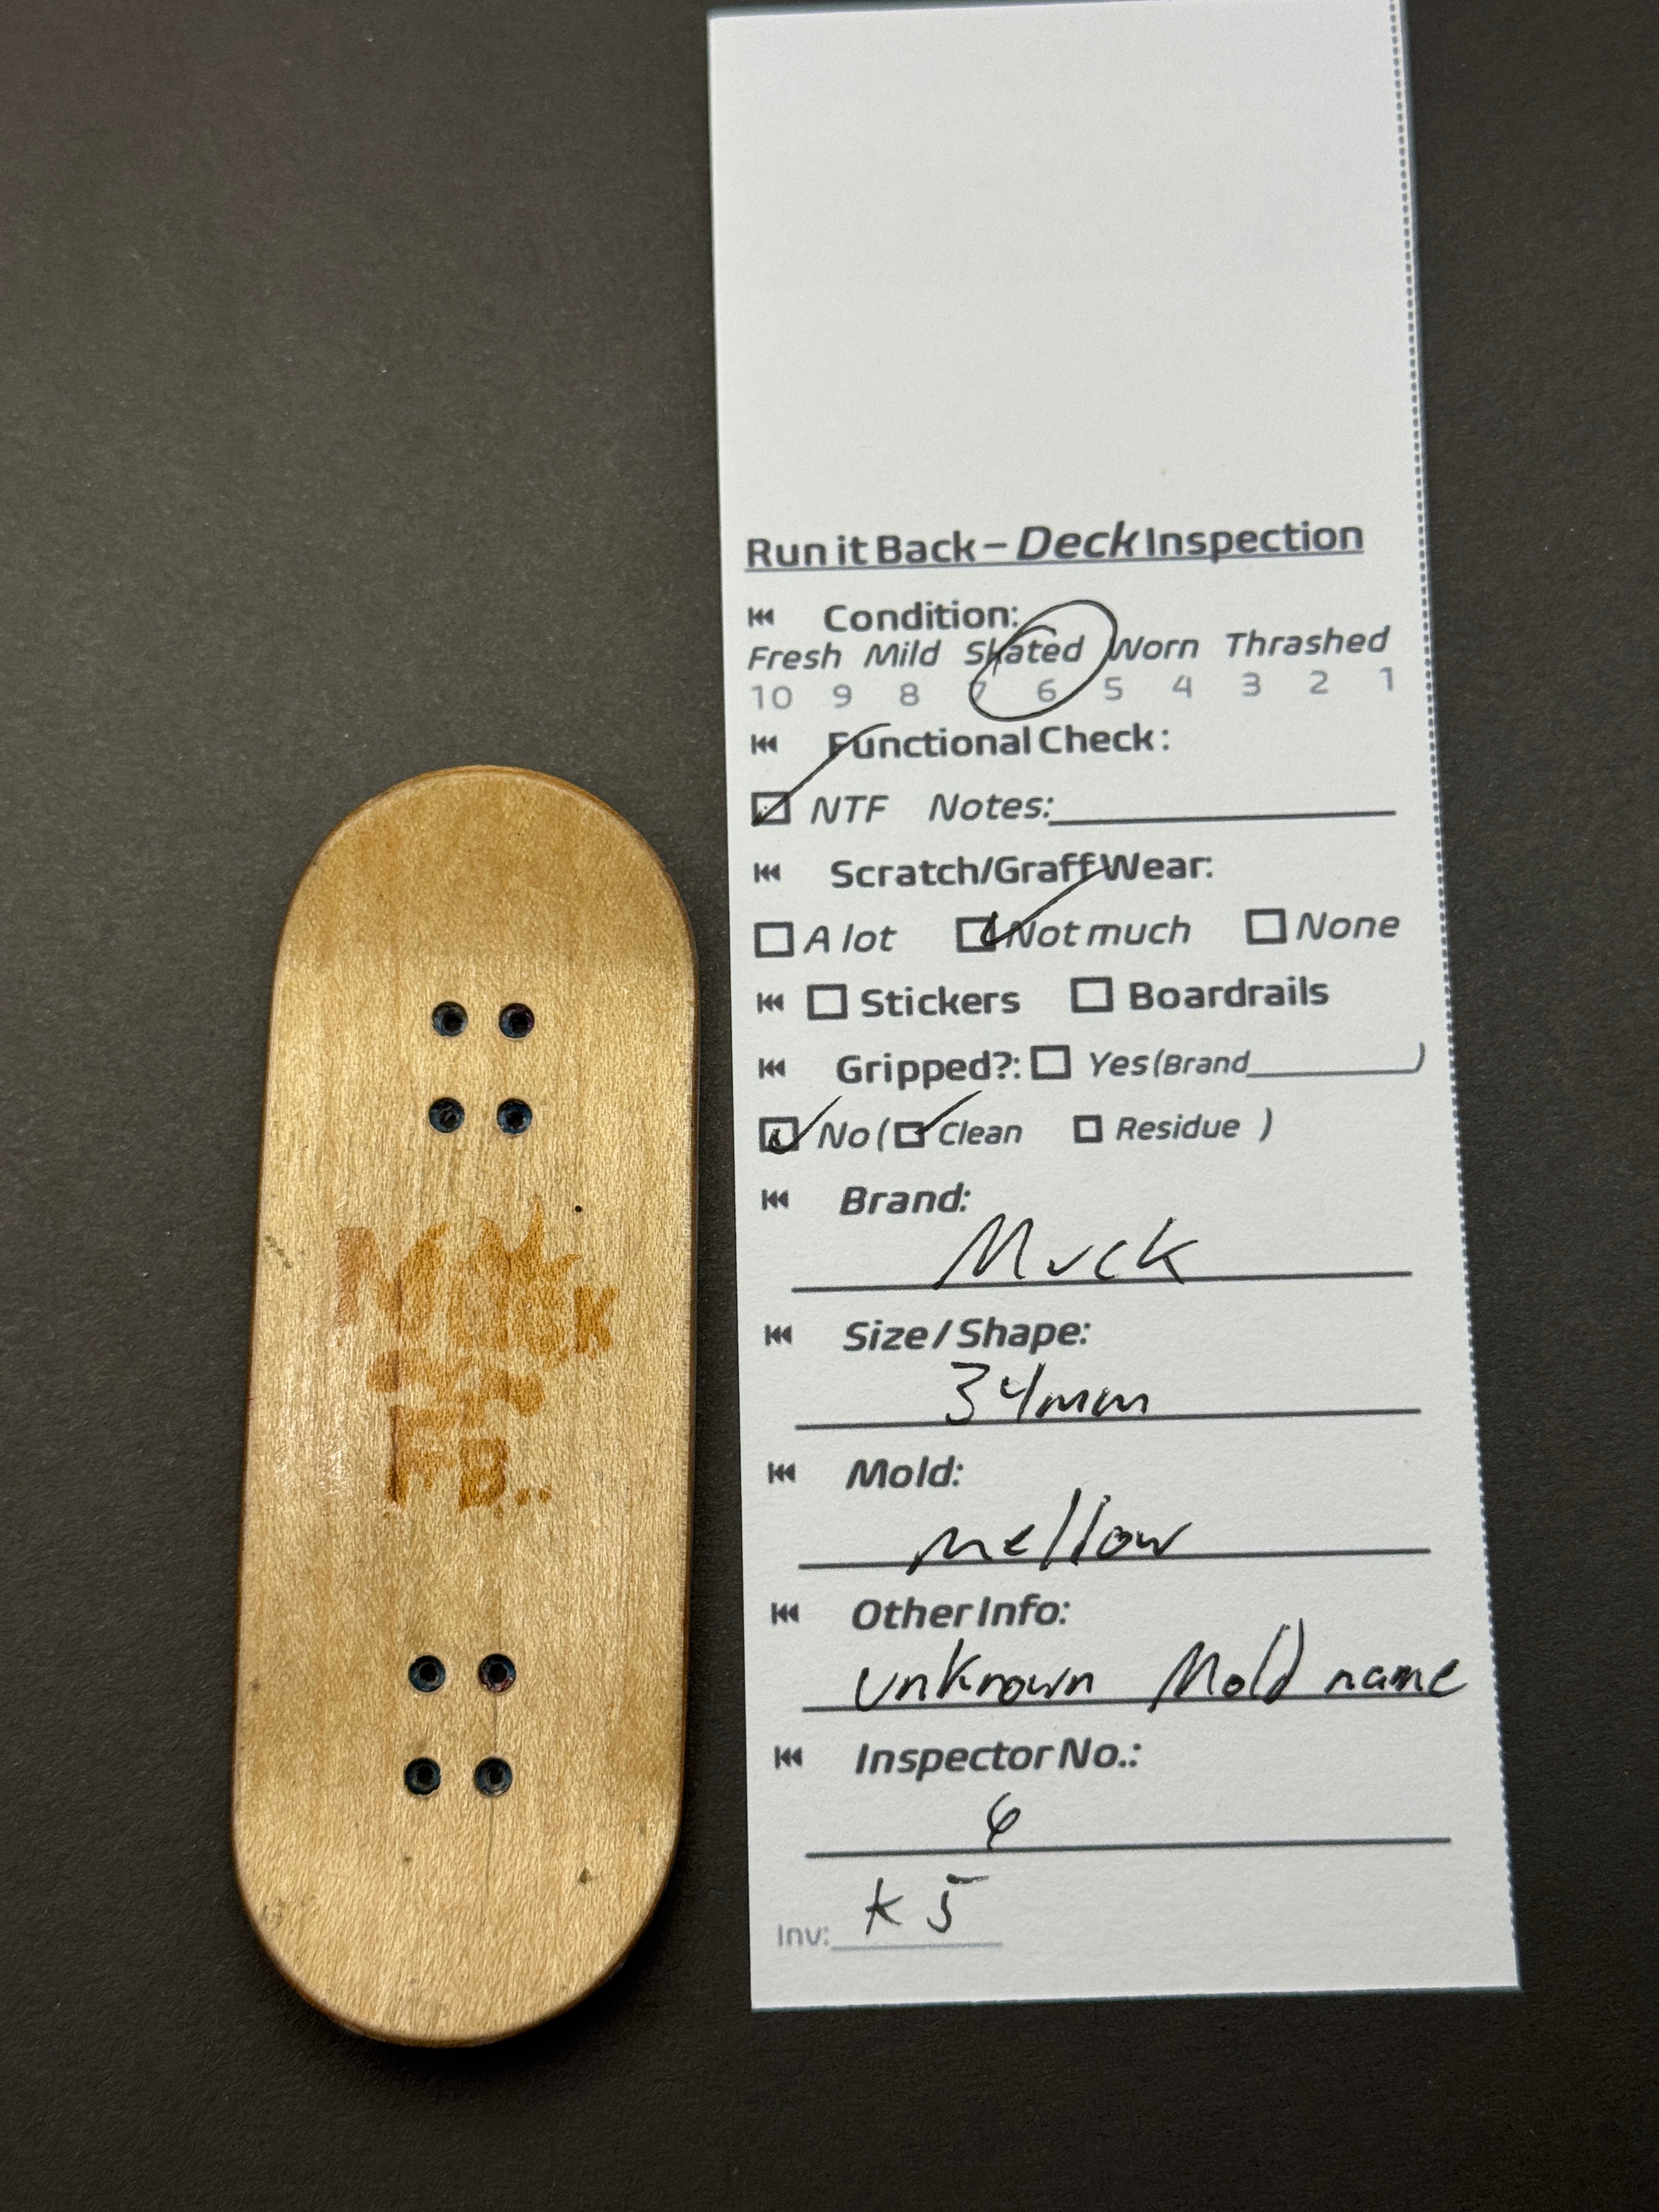 MUCK
FB..
Run it Back – Deck Inspection
Condition:
Fresh Mild Skated Worn Thrashed
10 9 8 7 6 5 4 3 2 1
Functional Check:
NTF Notes:
Scratch/Graff Wear:
A lot Not much None
Stickers Boardrails
Gripped?: Yes (Brand )
No ( Clean Residue )
Brand:
Muck
Size / Shape:
34mm
Mold:
mellow
Other Info:
unknown Mold name
Inspector No.:
6
Inv: K5